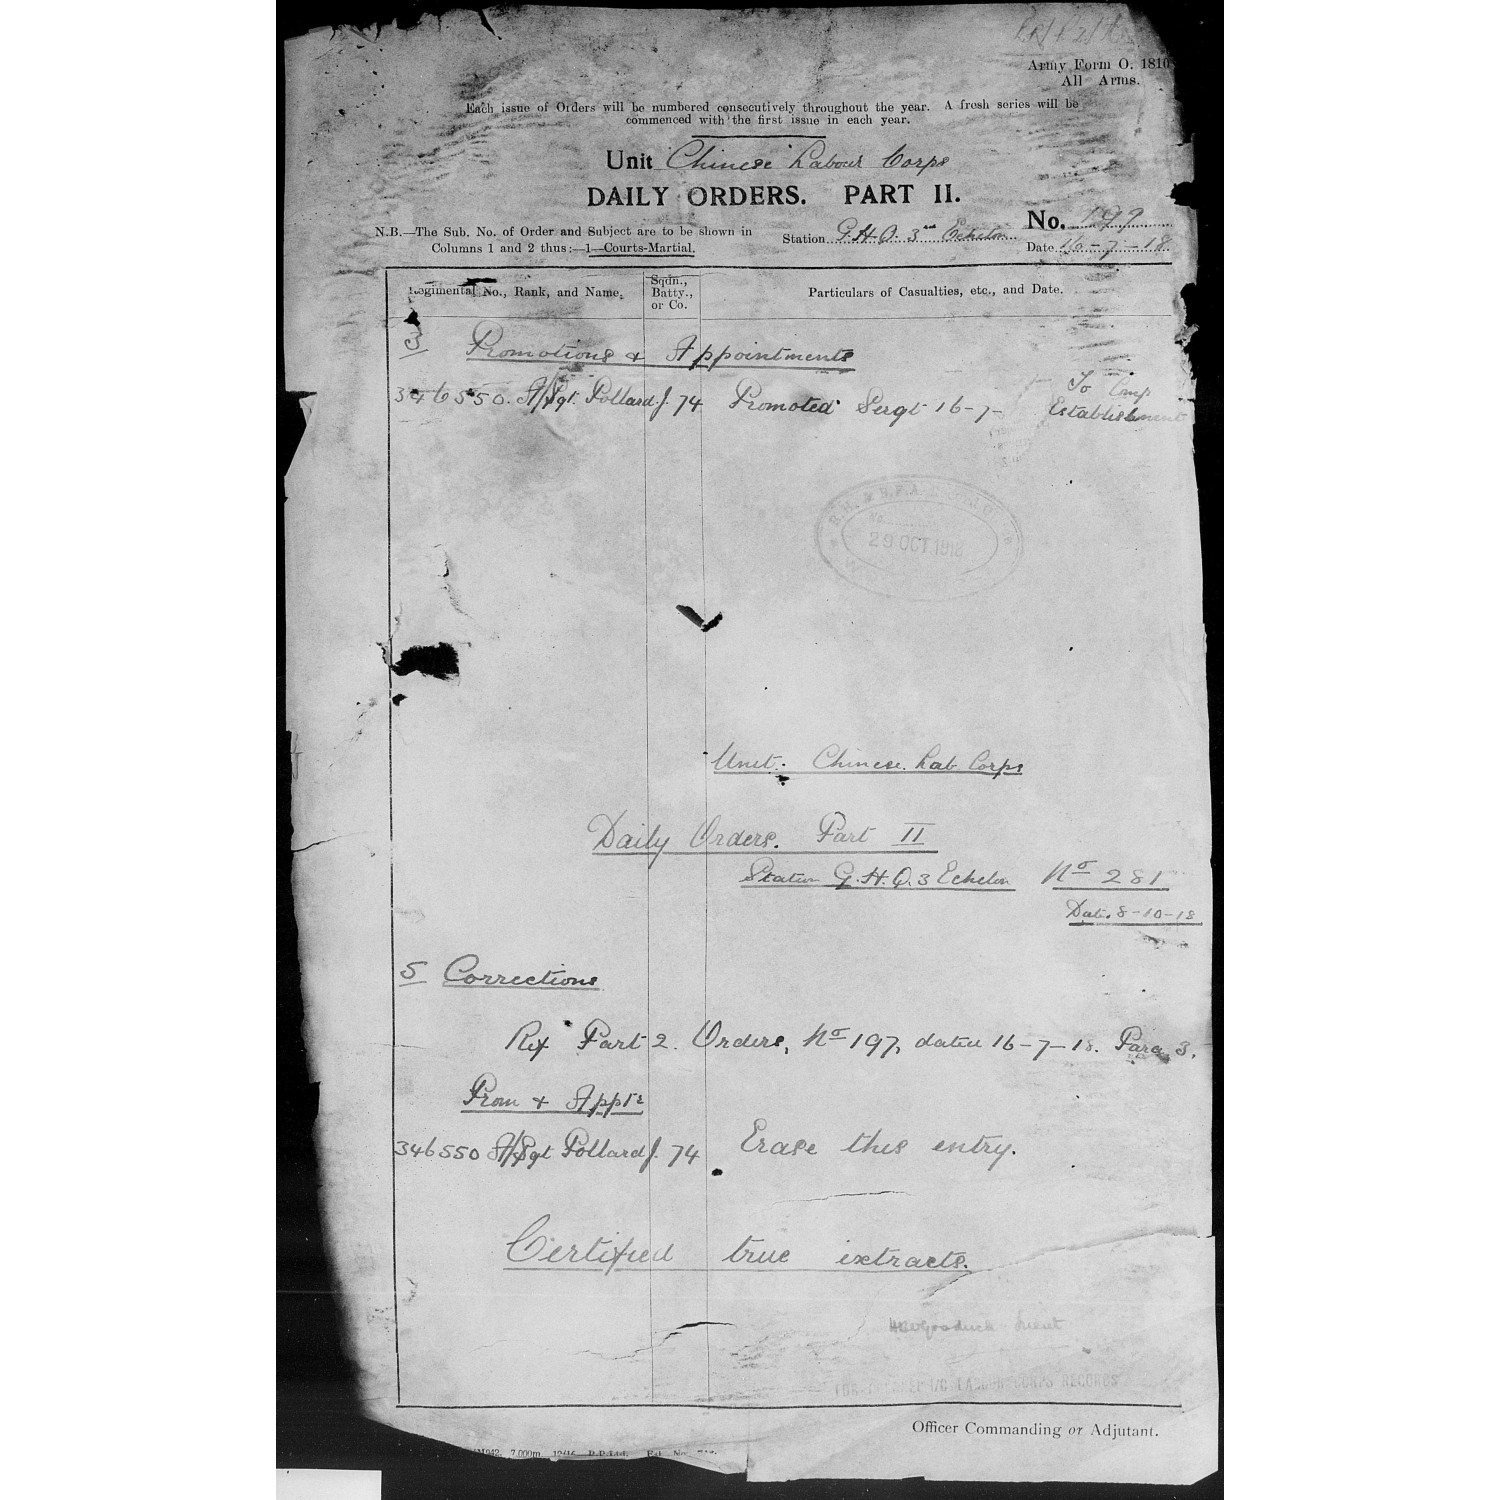 Army Form O. 1810
All Arms.
Each issue of Orders will be numbered consecutively throughout the year. A fresh series will be
commenced with the first issue in each year.
Unit Chinese Labour Corps
DAILY ORDERS. PART II.
N.B.—The Sub. No. of Order and Subject are to be shown in
Columns 1 and 2 thus:—1—Courts-Martial.
Station G.H.Q. 3rd Echelon
No. 197
Date 16-7-18
Regimental No., Rank, and Name.
Sqdn.,
Batty.,
or Co.
Particulars of Casualties, etc., and Date.
3 Promotions & Appointments
346550. A/Sgt. Pollard J. 74 Promoted Sergt 16-7- To Comp
Establishment
29 OCT 1918
Unit. Chinese. Lab Corps
Daily Orders. Part II
Station G.H.Q. 3 Echelon No 281
Date 8-10-18
5 Corrections
Ref Part 2. Orders, No 197, dated 16-7-18. Para 3.
Prom & Appts
346550 A/Sgt Pollard J. 74 Erase this entry.
Certified true extracts.
I/C LABOUR CORPS RECORDS
Officer Commanding or Adjutant.